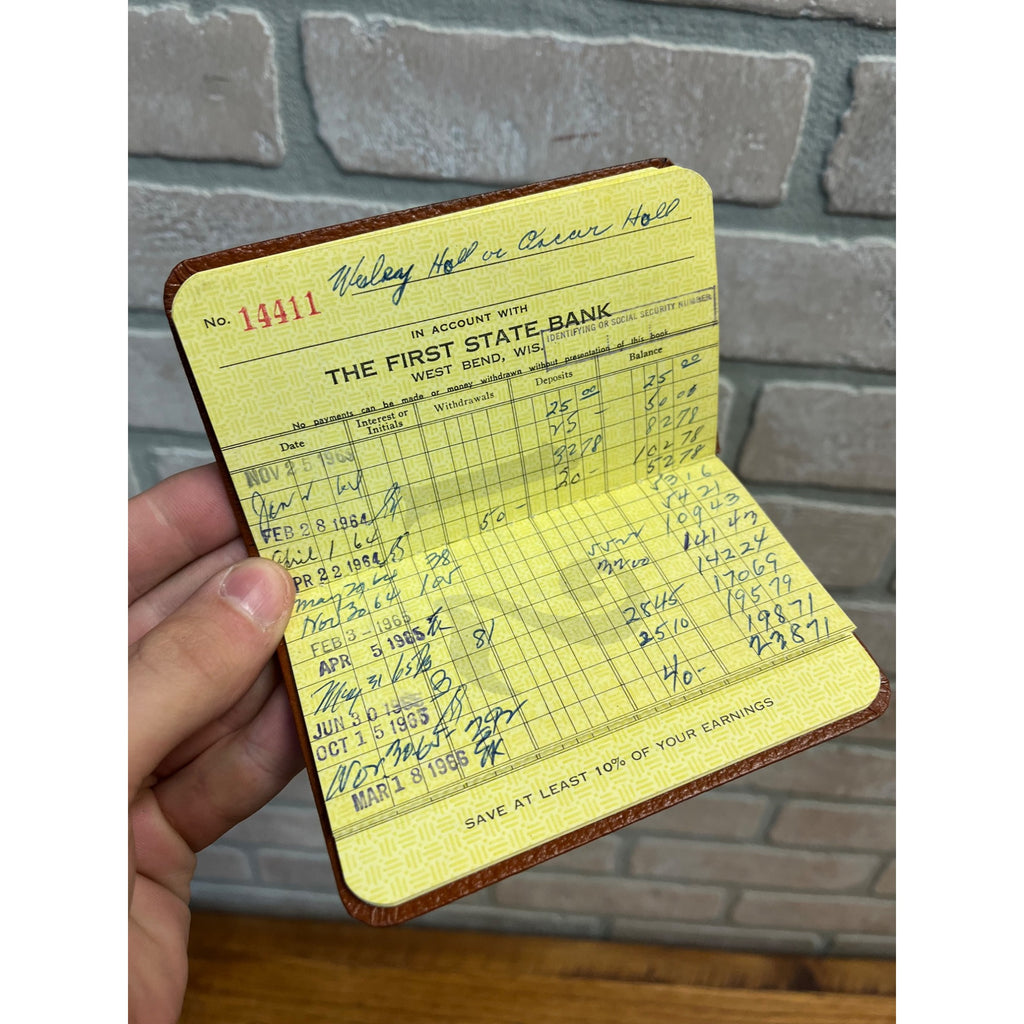 Wesley Holl or Oscar Holl
No. 14411
IN ACCOUNT WITH
THE FIRST STATE BANK
WEST BEND, WIS.
IDENTIFYING OR SOCIAL SECURITY NUMBER
No payments can be made or money withdrawn without presentation of this book
Date Interest or Initials Withdrawals Deposits Balance
NOV 25 1963 25 00 25 00
Jan 64 25 - 50 00
FEB 28 1964 32 78 82 78
April 1 64 20 - 102 78
APR 22 1964 50 - 52 78
May 29 64 38 53 16
Nov 30. 64 1 05 54 21
FEB 3 - 1965 109 43
APR 5 1965 32 00 141 43
May 31 65 81 142 24
JUN 30 1965 28 45 170 69
OCT 15 1965 25 10 195 79
Nov 30 65 2 92 198 71
MAR 18 1966 40 - 238 71
SAVE AT LEAST 10% OF YOUR EARNINGS